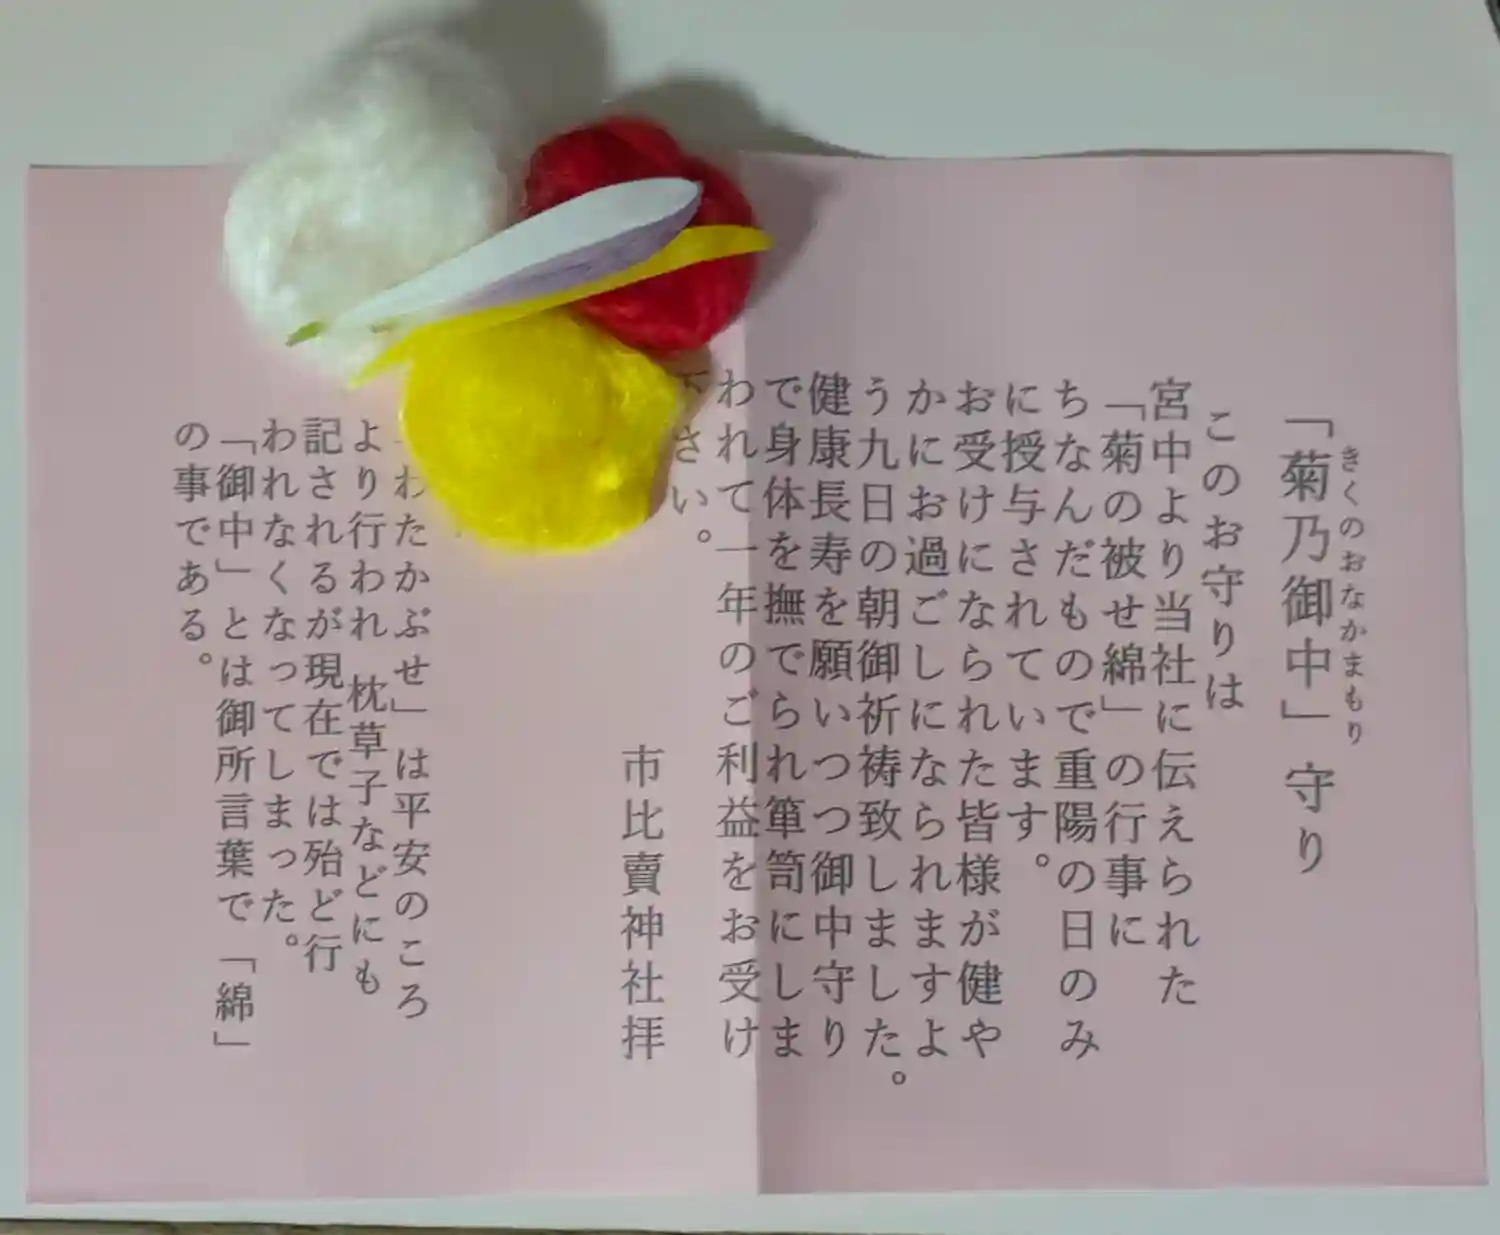 「菊乃御中」守り
きくのおなかまもり
このお守りは
宮中より当社に伝えられた
「菊の被せ綿」の行事に
ちなんだもので重陽の日のみ
に授与されています。
お受けになられた皆様が健や
かにお過ごしになられますよ
う九日の朝御祈祷致しました。
健康長寿を願いつつ御中守り
で身体を撫でられ箪笥にしま
われて一年のご利益をお受け
さい。
市比賣神社拝
わたかぶせ」は平安のころ
より行われ 枕草子などにも
記されるが現在では殆ど行
われなくなってしまった。
「御中」とは御所言葉で「綿」
の事である。